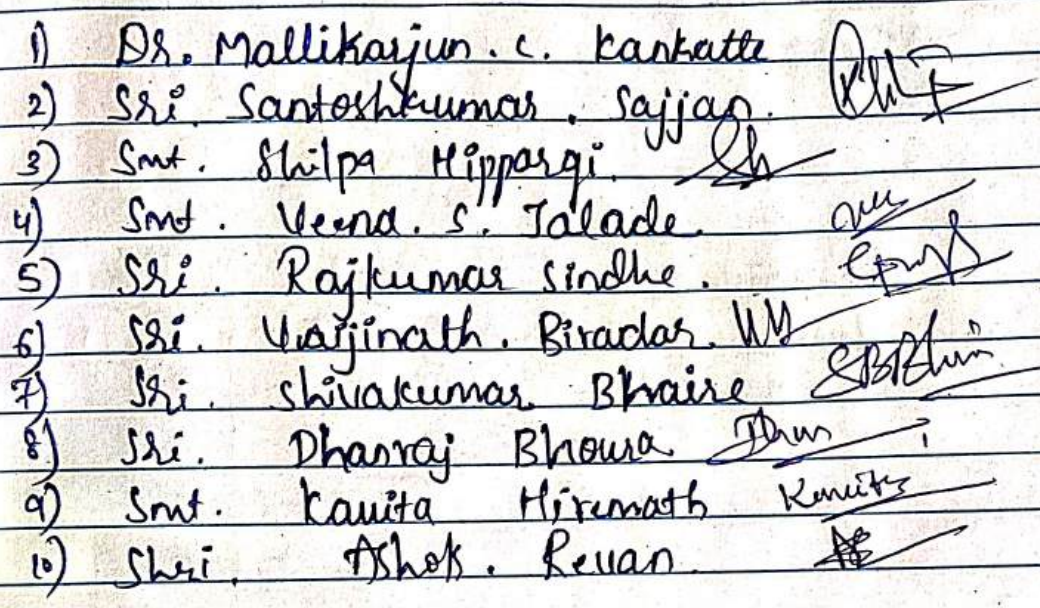 1) Dr. Mallikarjun. C. Kankatte
2) Sri. Santoshkumar. Sajjan.
3) Smt. Shilpa Hippargi.
4) Smt. Veena. S. Jalade.
5) Sri. Rajkumar Sindhe.
6) Sri. Vaijinath. Biradar.
7) Sri. Shivakumar Bhaire
8) Sri. Dhanraj Bhoura
9) Smt. Kavita Hiremath Kavita
10) Shri. Ashok. Revan.